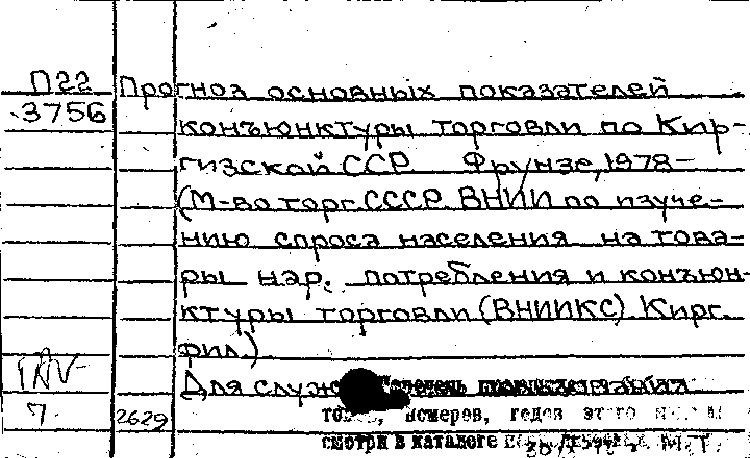 П22 Прогноз основных показателей
3756
конъюнктуры торговли по Кир-
гизской ССР. Фрунзе, 1978-
(М-во торг. СССР. ВНИИ по изуче-
нию спроса населения на това-
ры нар. потребления и конъюн-
ктуры торговли (ВНИИКС) Кирг.
фил.)
Для служ
7 2629 номеров, годов этого
смотри в каталоге